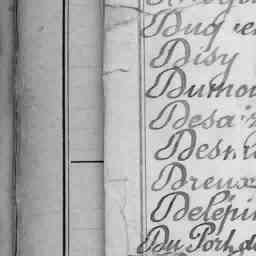 Dug
Disy
Dumou
Desaiz
Desm
Dreux
Delépin
Du Port de